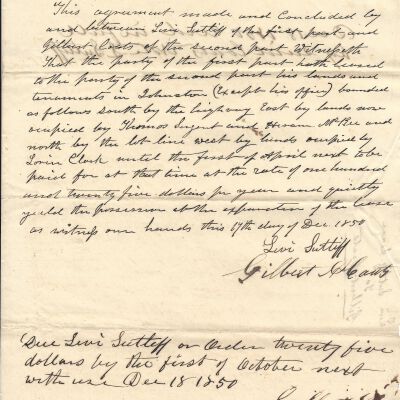 This agreement made and Concluded by
and between Levi Sutliff of the first part and
Gilbert of the second part Witnesseth
That the party of the first part hath leased
to the party of the second part his lands and
tenements in Johnston (Except his office) bounded
as follows south by the highway East by lands now
occupied by Thomas and Hiram McKee and
north by the lot line west by lands occupied by
Lorin Clark until the first of April next to be
paid for at that time at the rate of one hundred
and twenty five dollars per year and quietly
yield the possession at the expiration of the lease
as witness our hands this 17th day of Dec 1850
Levi Sutliff
Gilbert
Due Levi Sutliff or Order twenty five
dollars by the first of October next
with use Dec 18 1850